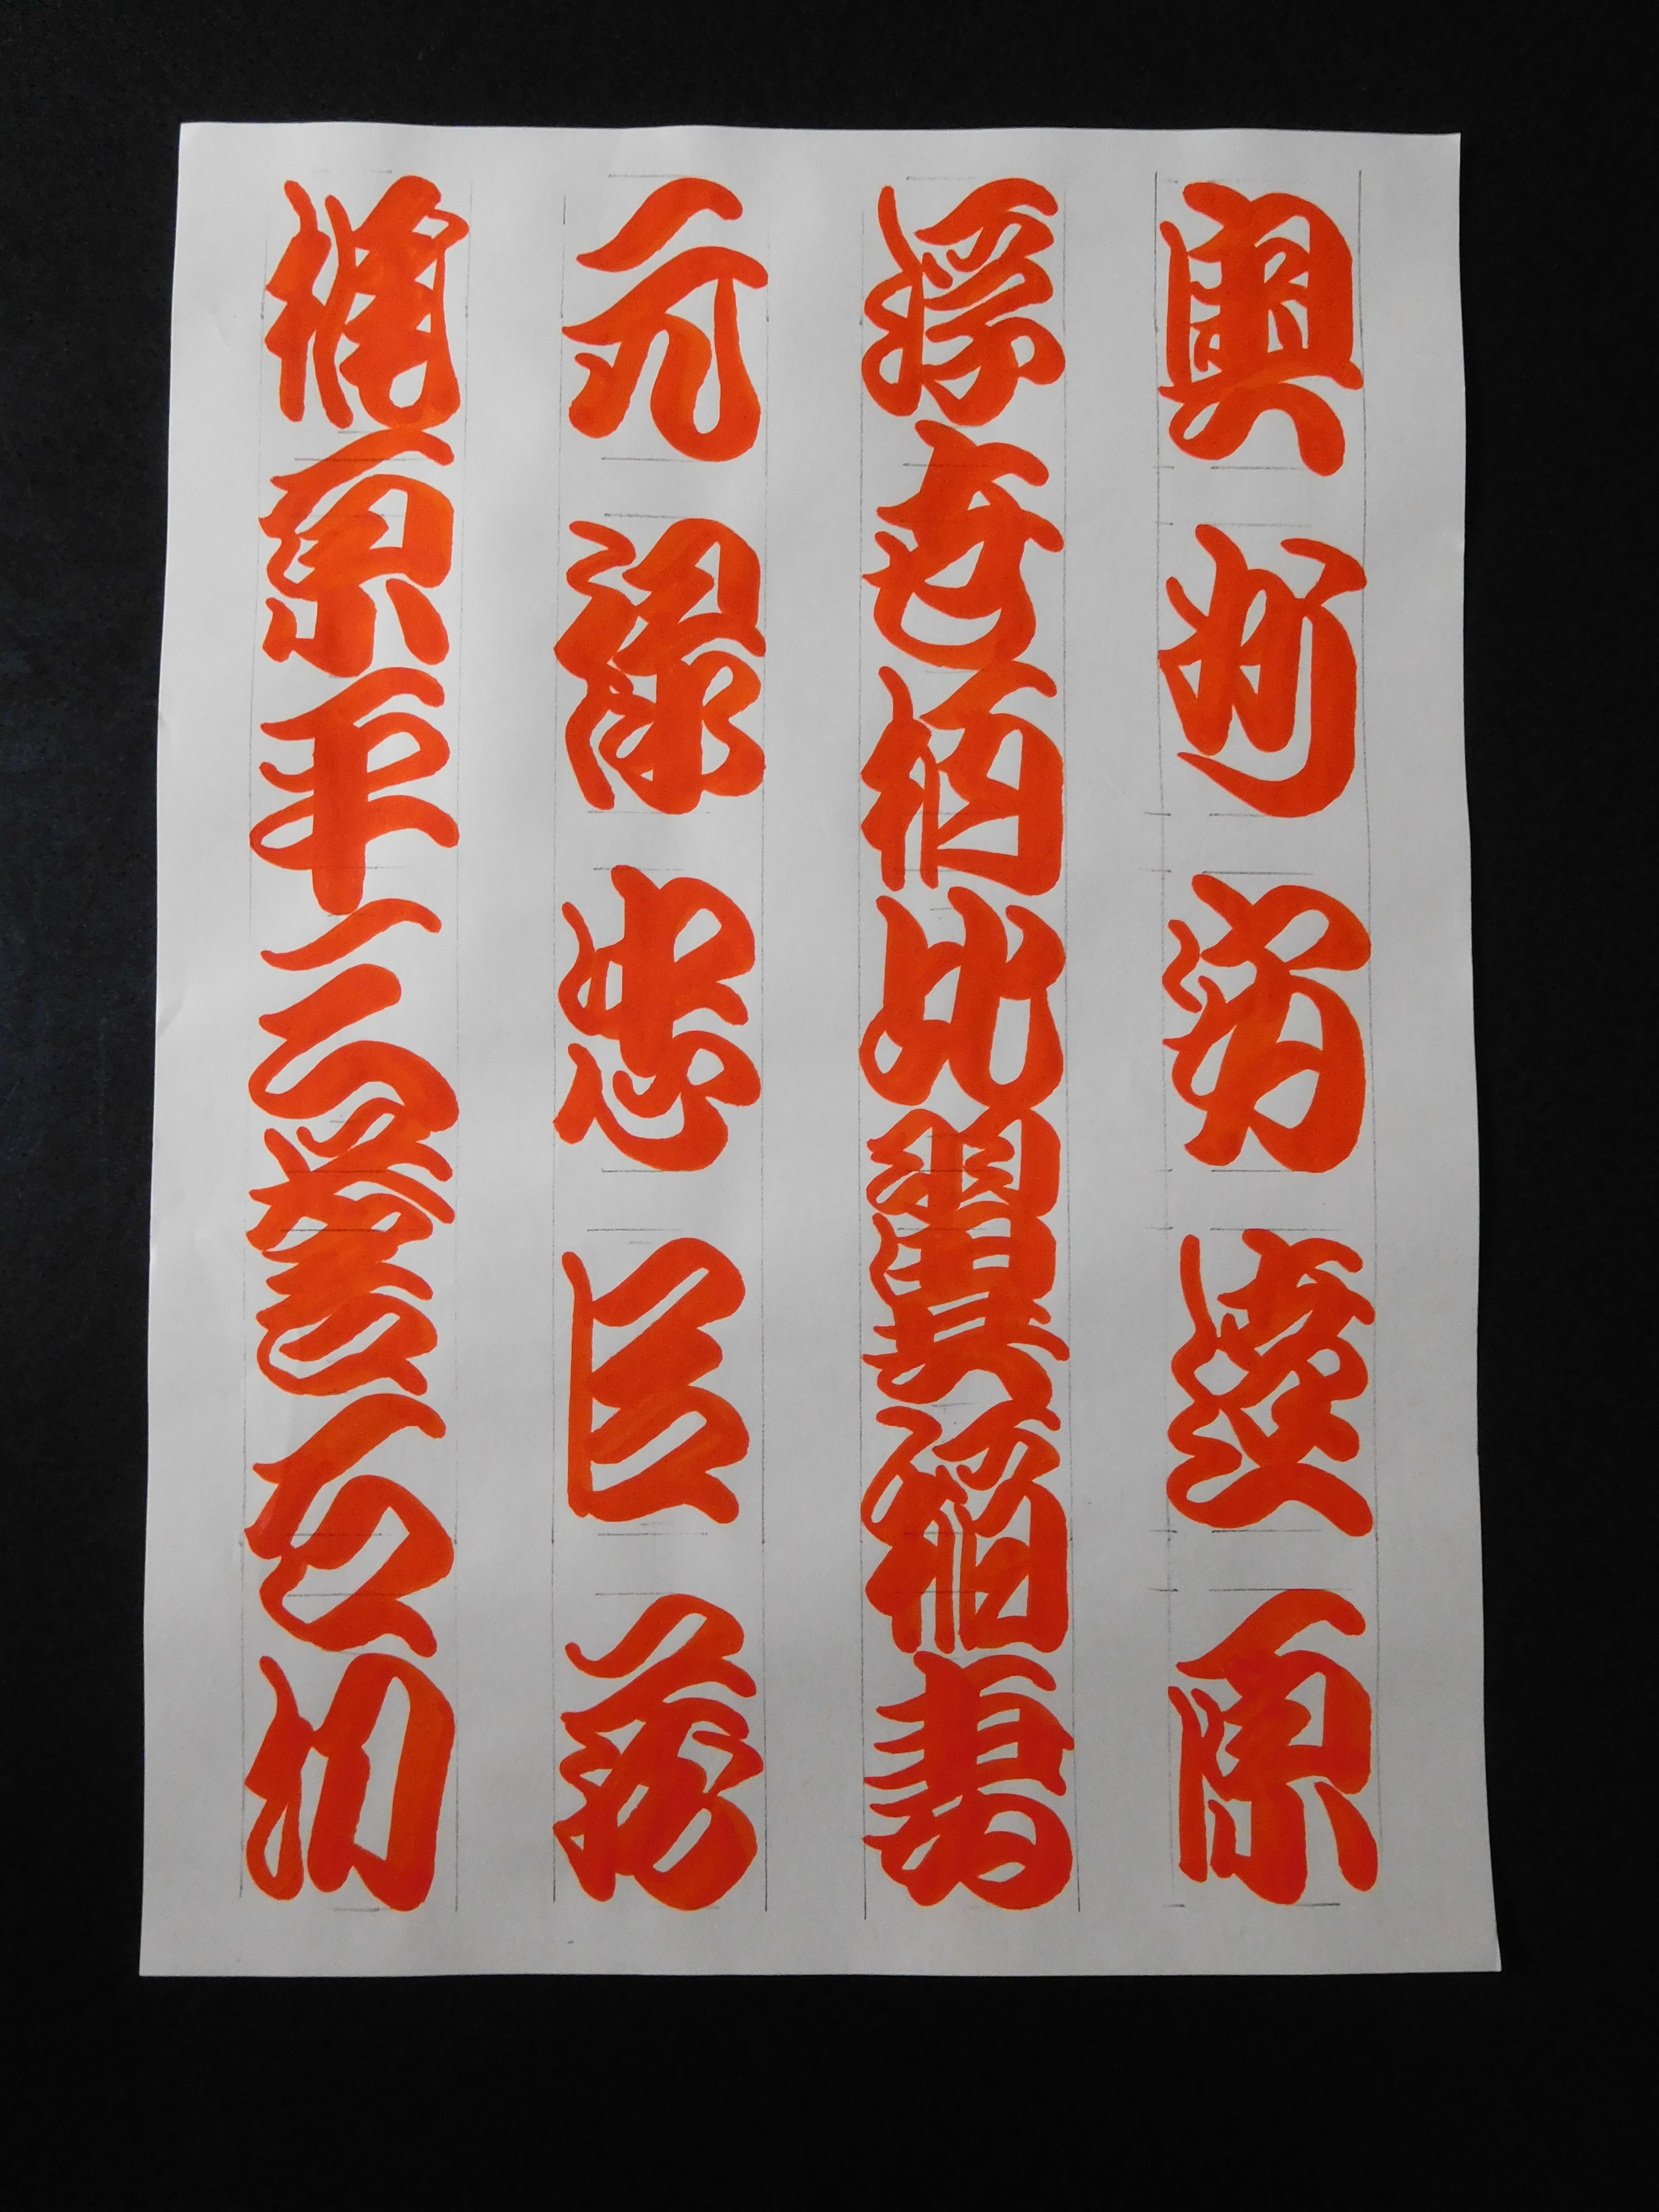 奥州安達原
浮世柄比翼稲妻
元禄忠臣蔵
梶原平三誉石切